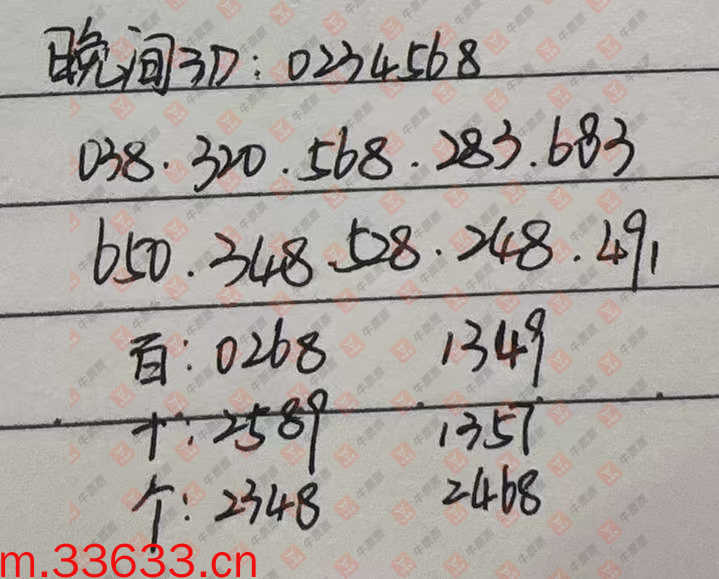 晚间3D：0234568
038．320．568．283．683
650．348．528．248．491
百：0268 1349
十：2589 1357
个：2348 2468
m.33633.cn